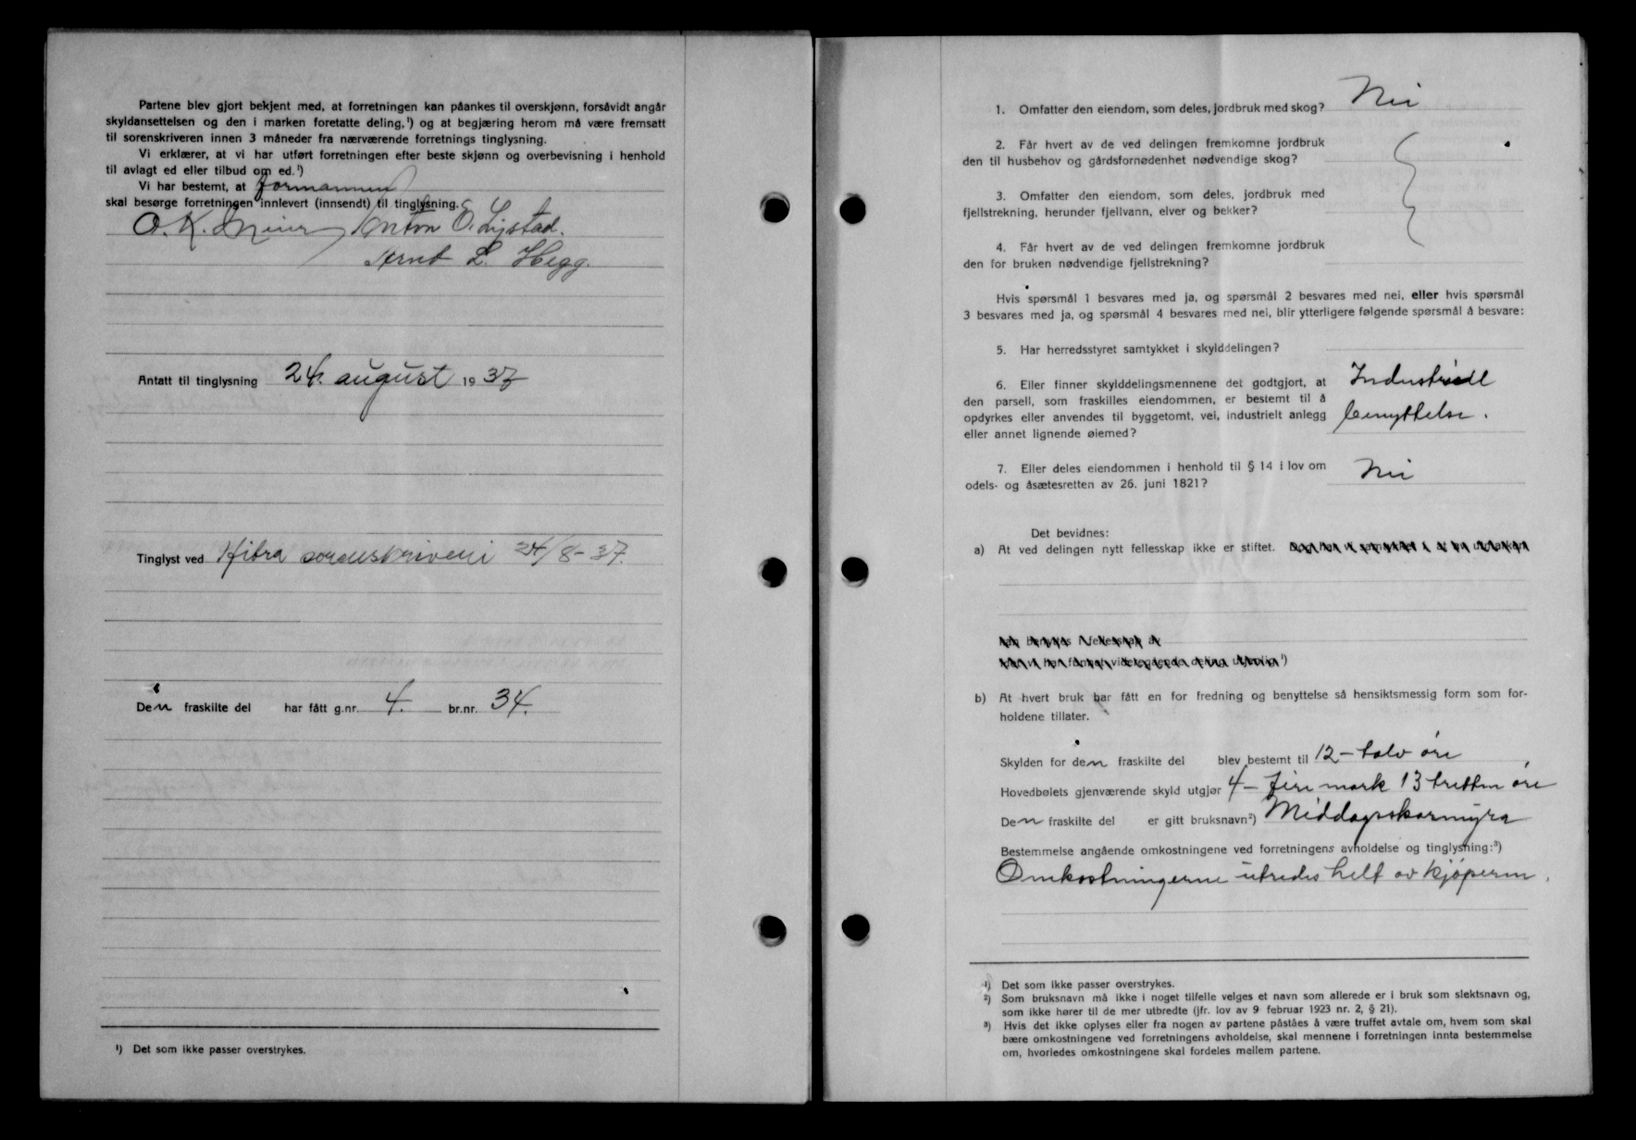 Partene blev gjort bekjent med, at forretningen kan påankes til overskjønn, forsåvidt angår
skyldansettelsen og den i marken foretatte deling,¹) og at begjæring herom må være fremsatt
til sorenskriveren innen 3 måneder fra nærværende forretnings tinglysning.
Vi erklærer, at vi har utført forretningen efter beste skjønn og overbevisning i henhold
til avlagt ed eller tilbud om ed.¹)
Vi har bestemt, at formannen
skal besørge forretningen innlevert (innsendt) til tinglysning.
O. K. Anton E. Lijstad.
Arnt L. Hegg.
Antatt til tinglysning 24. august 1937
Tinglyst ved Hitra sorenskriveri 24/8-37.
Den fraskilte del har fått g.nr. 4. br.nr. 34.
¹) Det som ikke passer overstrykes.
1. Omfatter den eiendom, som deles, jordbruk med skog? Nei
2. Får hvert av de ved delingen fremkomne jordbruk
den til husbehov og gårdsfornødenhet nødvendige skog?
3. Omfatter den eiendom, som deles, jordbruk med
fjellstrekning, herunder fjellvann, elver og bekker?
4. Får hvert av de ved delingen fremkomne jordbruk
den for bruken nødvendige fjellstrekning?
Hvis spørsmål 1 besvares med ja, og spørsmål 2 besvares med nei, eller hvis spørsmål
3 besvares med ja, og spørsmål 4 besvares med nei, blir ytterligere følgende spørsmål å besvare:
5. Har herredsstyret samtykket i skylddelingen?
6. Eller finner skylddelingsmennene det godtgjort, at Industriell
den parsell, som fraskilles eiendommen, er bestemt til å
opdyrkes eller anvendes til byggetomt, vei, industrielt anlegg benyttelse.
eller annet lignende øiemed?
7. Eller deles eiendommen i henhold til § 14 i lov om Nei
odels- og åsætesretten av 26. juni 1821?
Det bevidnes:
a) At ved delingen nytt fellesskap ikke er stiftet.
b) At hvert bruk har fått en for fredning og benyttelse så hensiktsmessig form som for-
holdene tillater.
Skylden for den fraskilte del blev bestemt til 12 - tolv øre
Hovedbølets gjenværende skyld utgjør 4 - fire mark 13 tretten øre
Den fraskilte del er gitt bruksnavn²) Middagsskarmyra
Bestemmelse angående omkostningene ved forretningens avholdelse og tinglysning:³)
Omkostningerne utredes helt av kjøperen.
¹) Det som ikke passer overstrykes.
²) Som bruksnavn må ikke i noget tilfelle velges et navn som allerede er i bruk som slektsnavn og,
som ikke hører til de mer utbredte (jfr. lov av 9 februar 1923 nr. 2, § 21).
³) Hvis det ikke oplyses eller fra nogen av partene påståes å være truffet avtale om, hvem som skal
bære omkostningene ved forretningens avholdelse, skal mennene i forretningen innta bestemmelse
om, hvorledes omkostningene skal fordeles mellem partene.